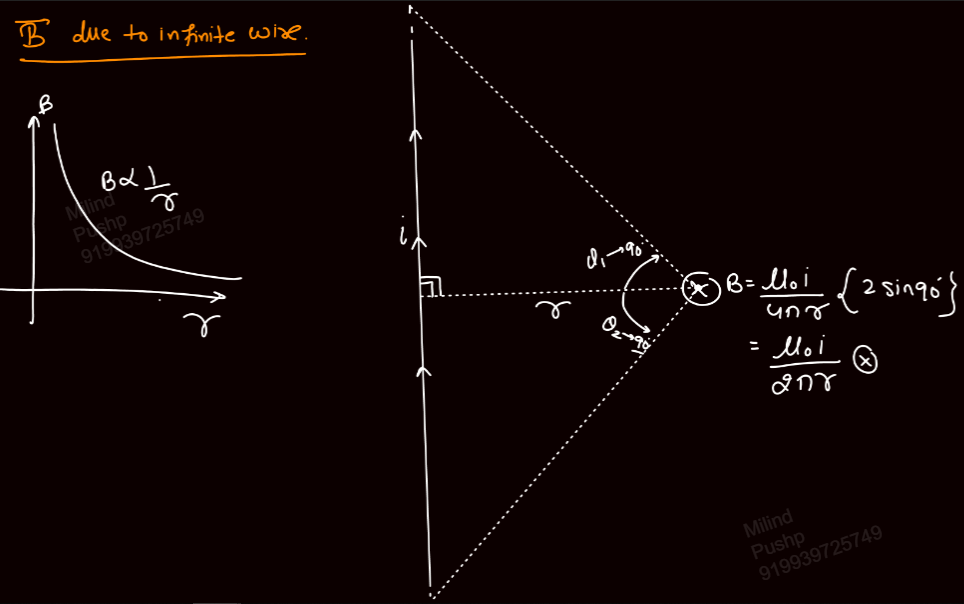 B̅ due to infinite wire.
B
B∝ 1/r
r
Milind
Pushp
919939725749
i
θ₁→90
r
θ₂→90
B = μ₀i/4πr {2 sin90°}
= μ₀i/2πr ⊗
Milind
Pushp
919939725749